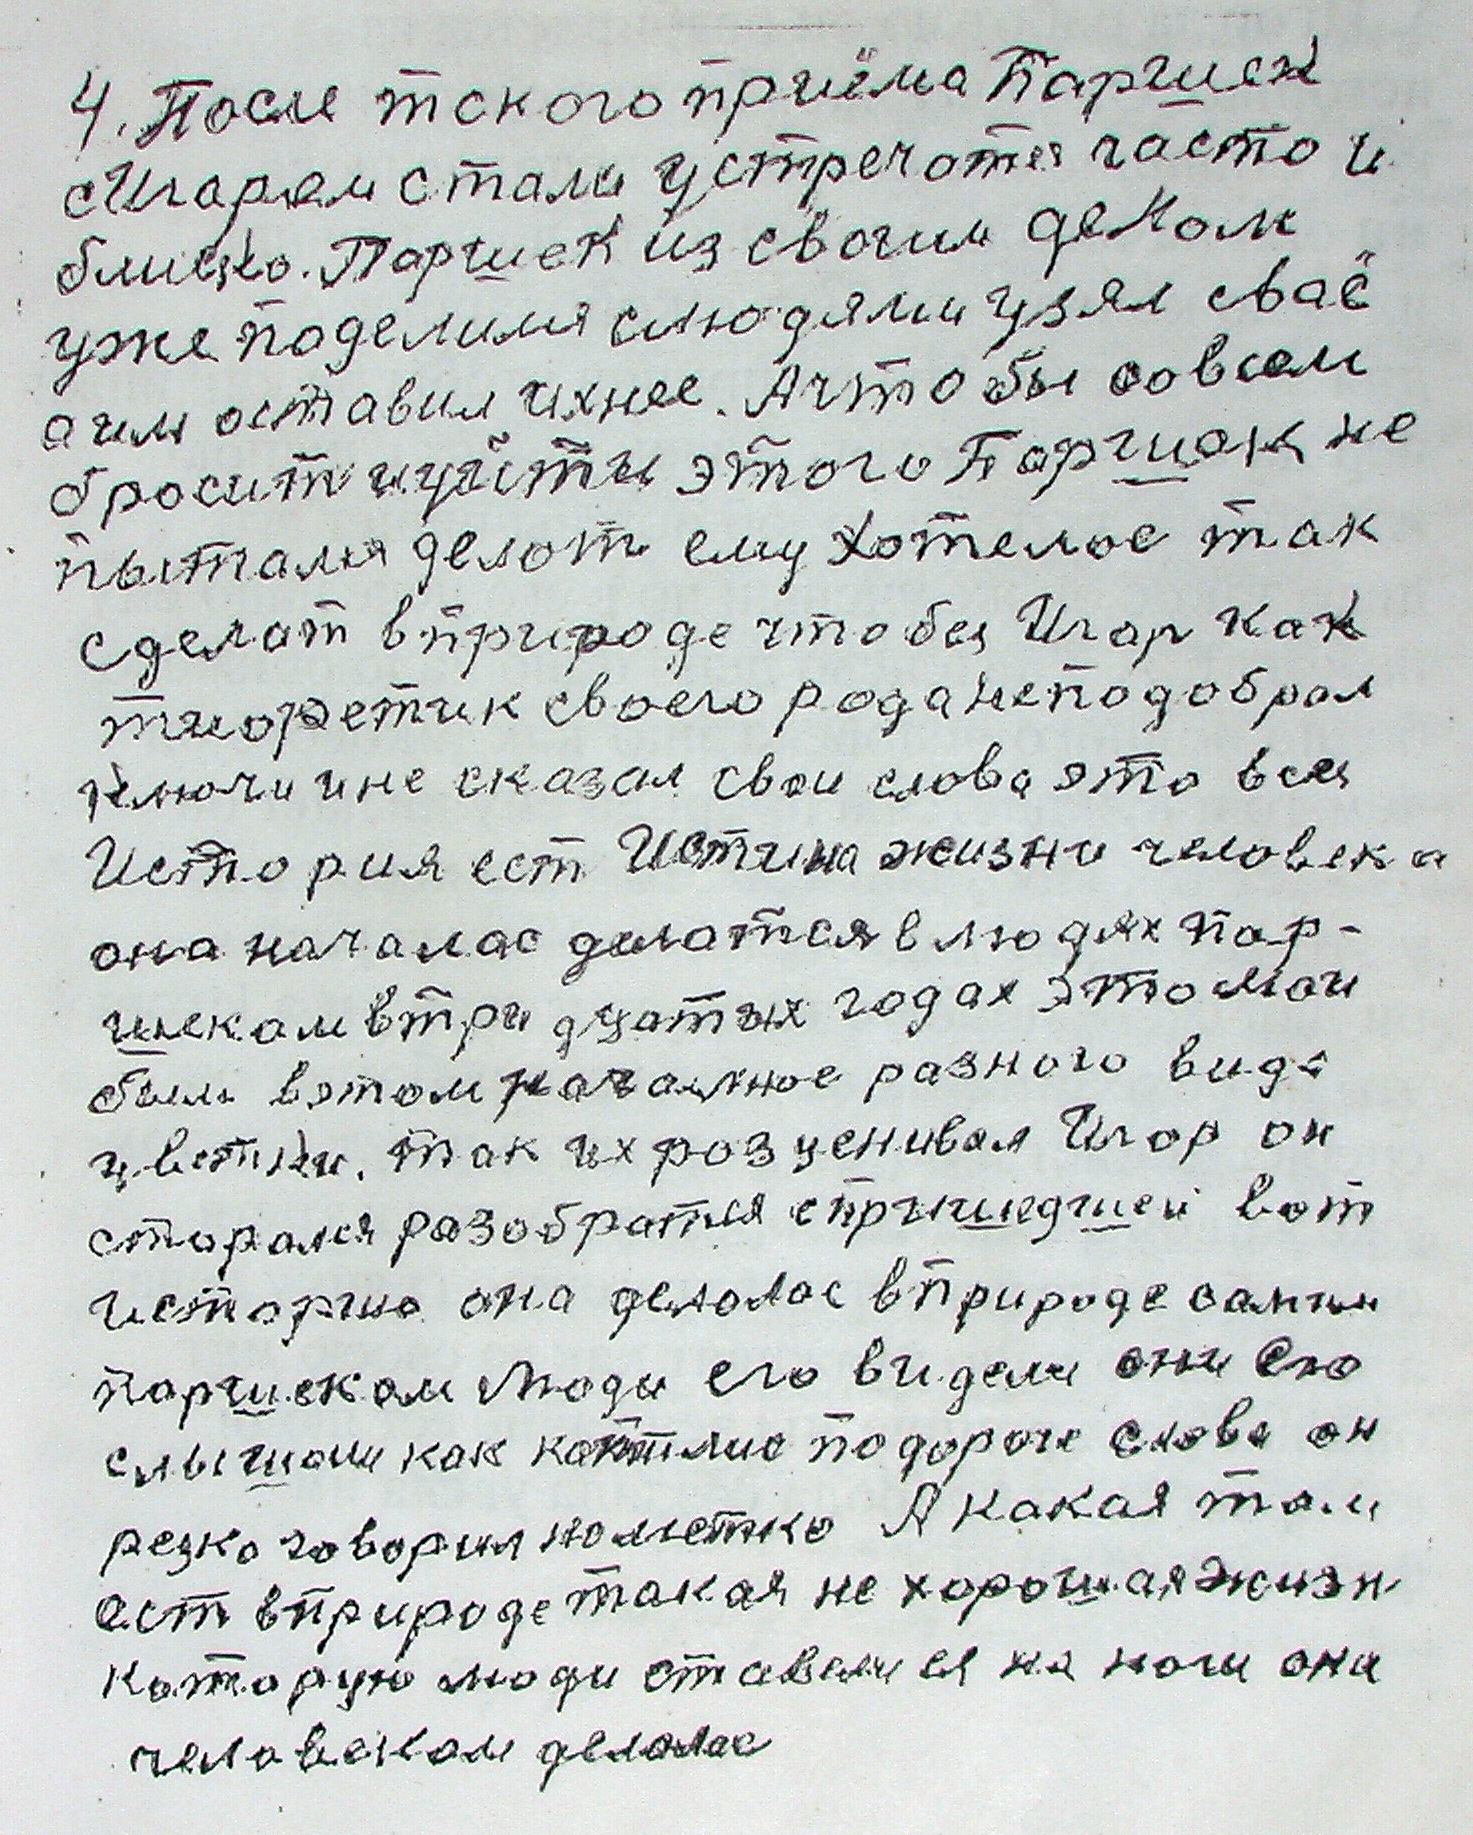 4. После tского приёма Паршек
с Игарем стали устречотся часто и
близко. Паршек из своим делом
уже поделился с людями узял сваё
а им оставил ихнее. А что бы совсем
бросит и уйти этого Паршек не
пытался делот ему хотелос так
сделат в природе что бы Игор как
тиоретик своего рода не подобрал
ключи и не сказал свои слова это вся
История ест Истина жизни человека
она началас делатся в людях пар-
шеком в тридцатых годах это мои
были в этом началное разного вида
цветки. так их розценивал Игор он
старался разобратся с пришедшей вот
историю она делолас в природе самим
паршеком Люди его видели они Ею
слышали как котилис по дороге слова он
резко говорил но метко А какая там
ест в природе такая не хорошая жизн
каторую люди ставили ея на ноги она
человеком делолас